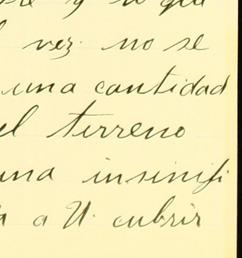 y lo que
vez no se
una cantidad
el terreno
una insinifi
a U. cubrir